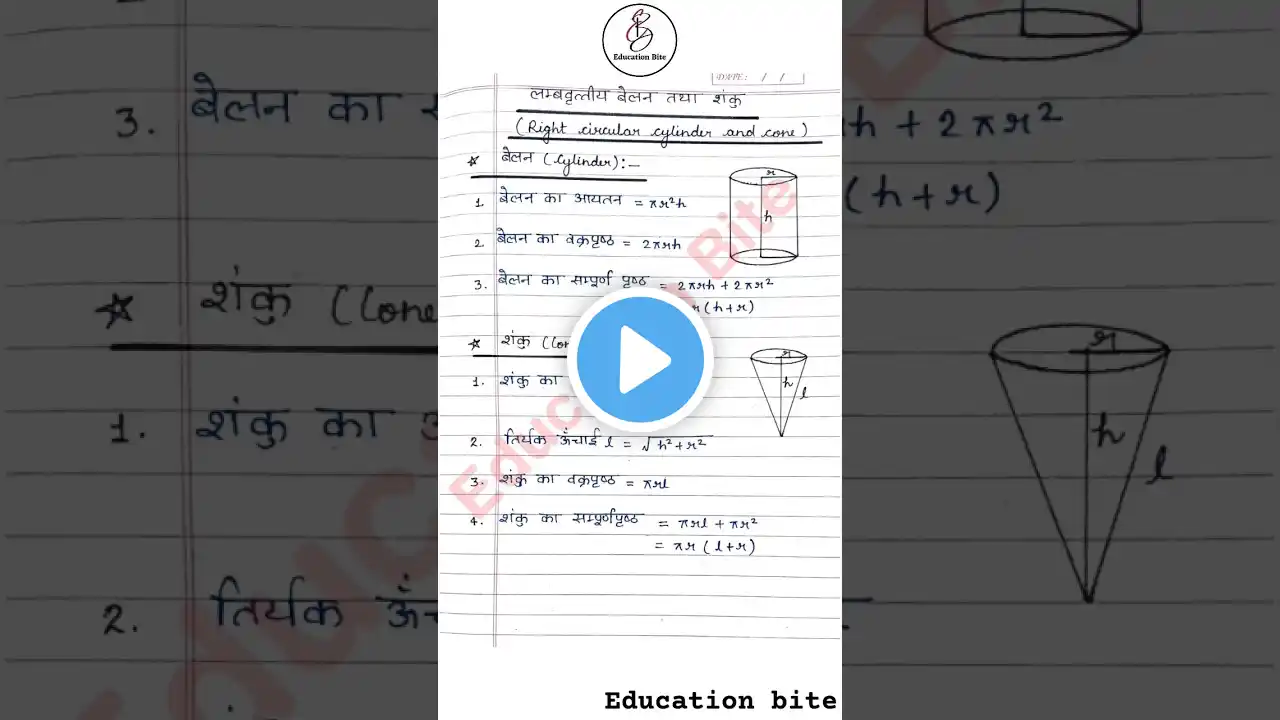 Education Bite
DATE: / /
लम्बवृत्तीय बेलन तथा शंकु
(Right circular cylinder and cone)
☆ बेलन (Cylinder):—
r
1. बेलन का आयतन = πr²h
h
2. बेलन का वक्रपृष्ठ = 2πrh
3. बेलन का सम्पूर्ण पृष्ठ = 2πrh + 2πr²
r(h+r)
☆ शंकु (Con
r
1. शंकु का
h
l
2. तिर्यक ऊँचाई l = √h²+r²
3. शंकु का वक्रपृष्ठ = πrl
4. शंकु का सम्पूर्णपृष्ठ = πrl + πr²
= πr (l+r)
Educ Bite
Education bite
3. बेलन का
h + 2πr²
(h+r)
☆ शंकु (Cone
1. शंकु का
2. तिर्यक ऊँ
r
h
l